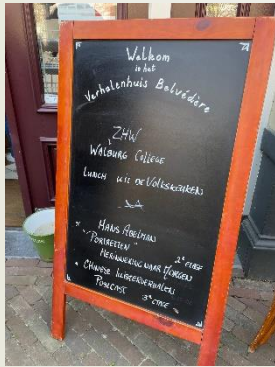 Welkom
in het
Verhalenhuis Belvédère
ZHW
WALBURG COLLEGE
LUNCH UIT DE VOLKSKEUKEN
HANS ABELMAN
"PORTRETTEN"
HERINNERING NAAR MORGEN
2e ETAGE
* CHINESE
PODCAST
3e ETAGE